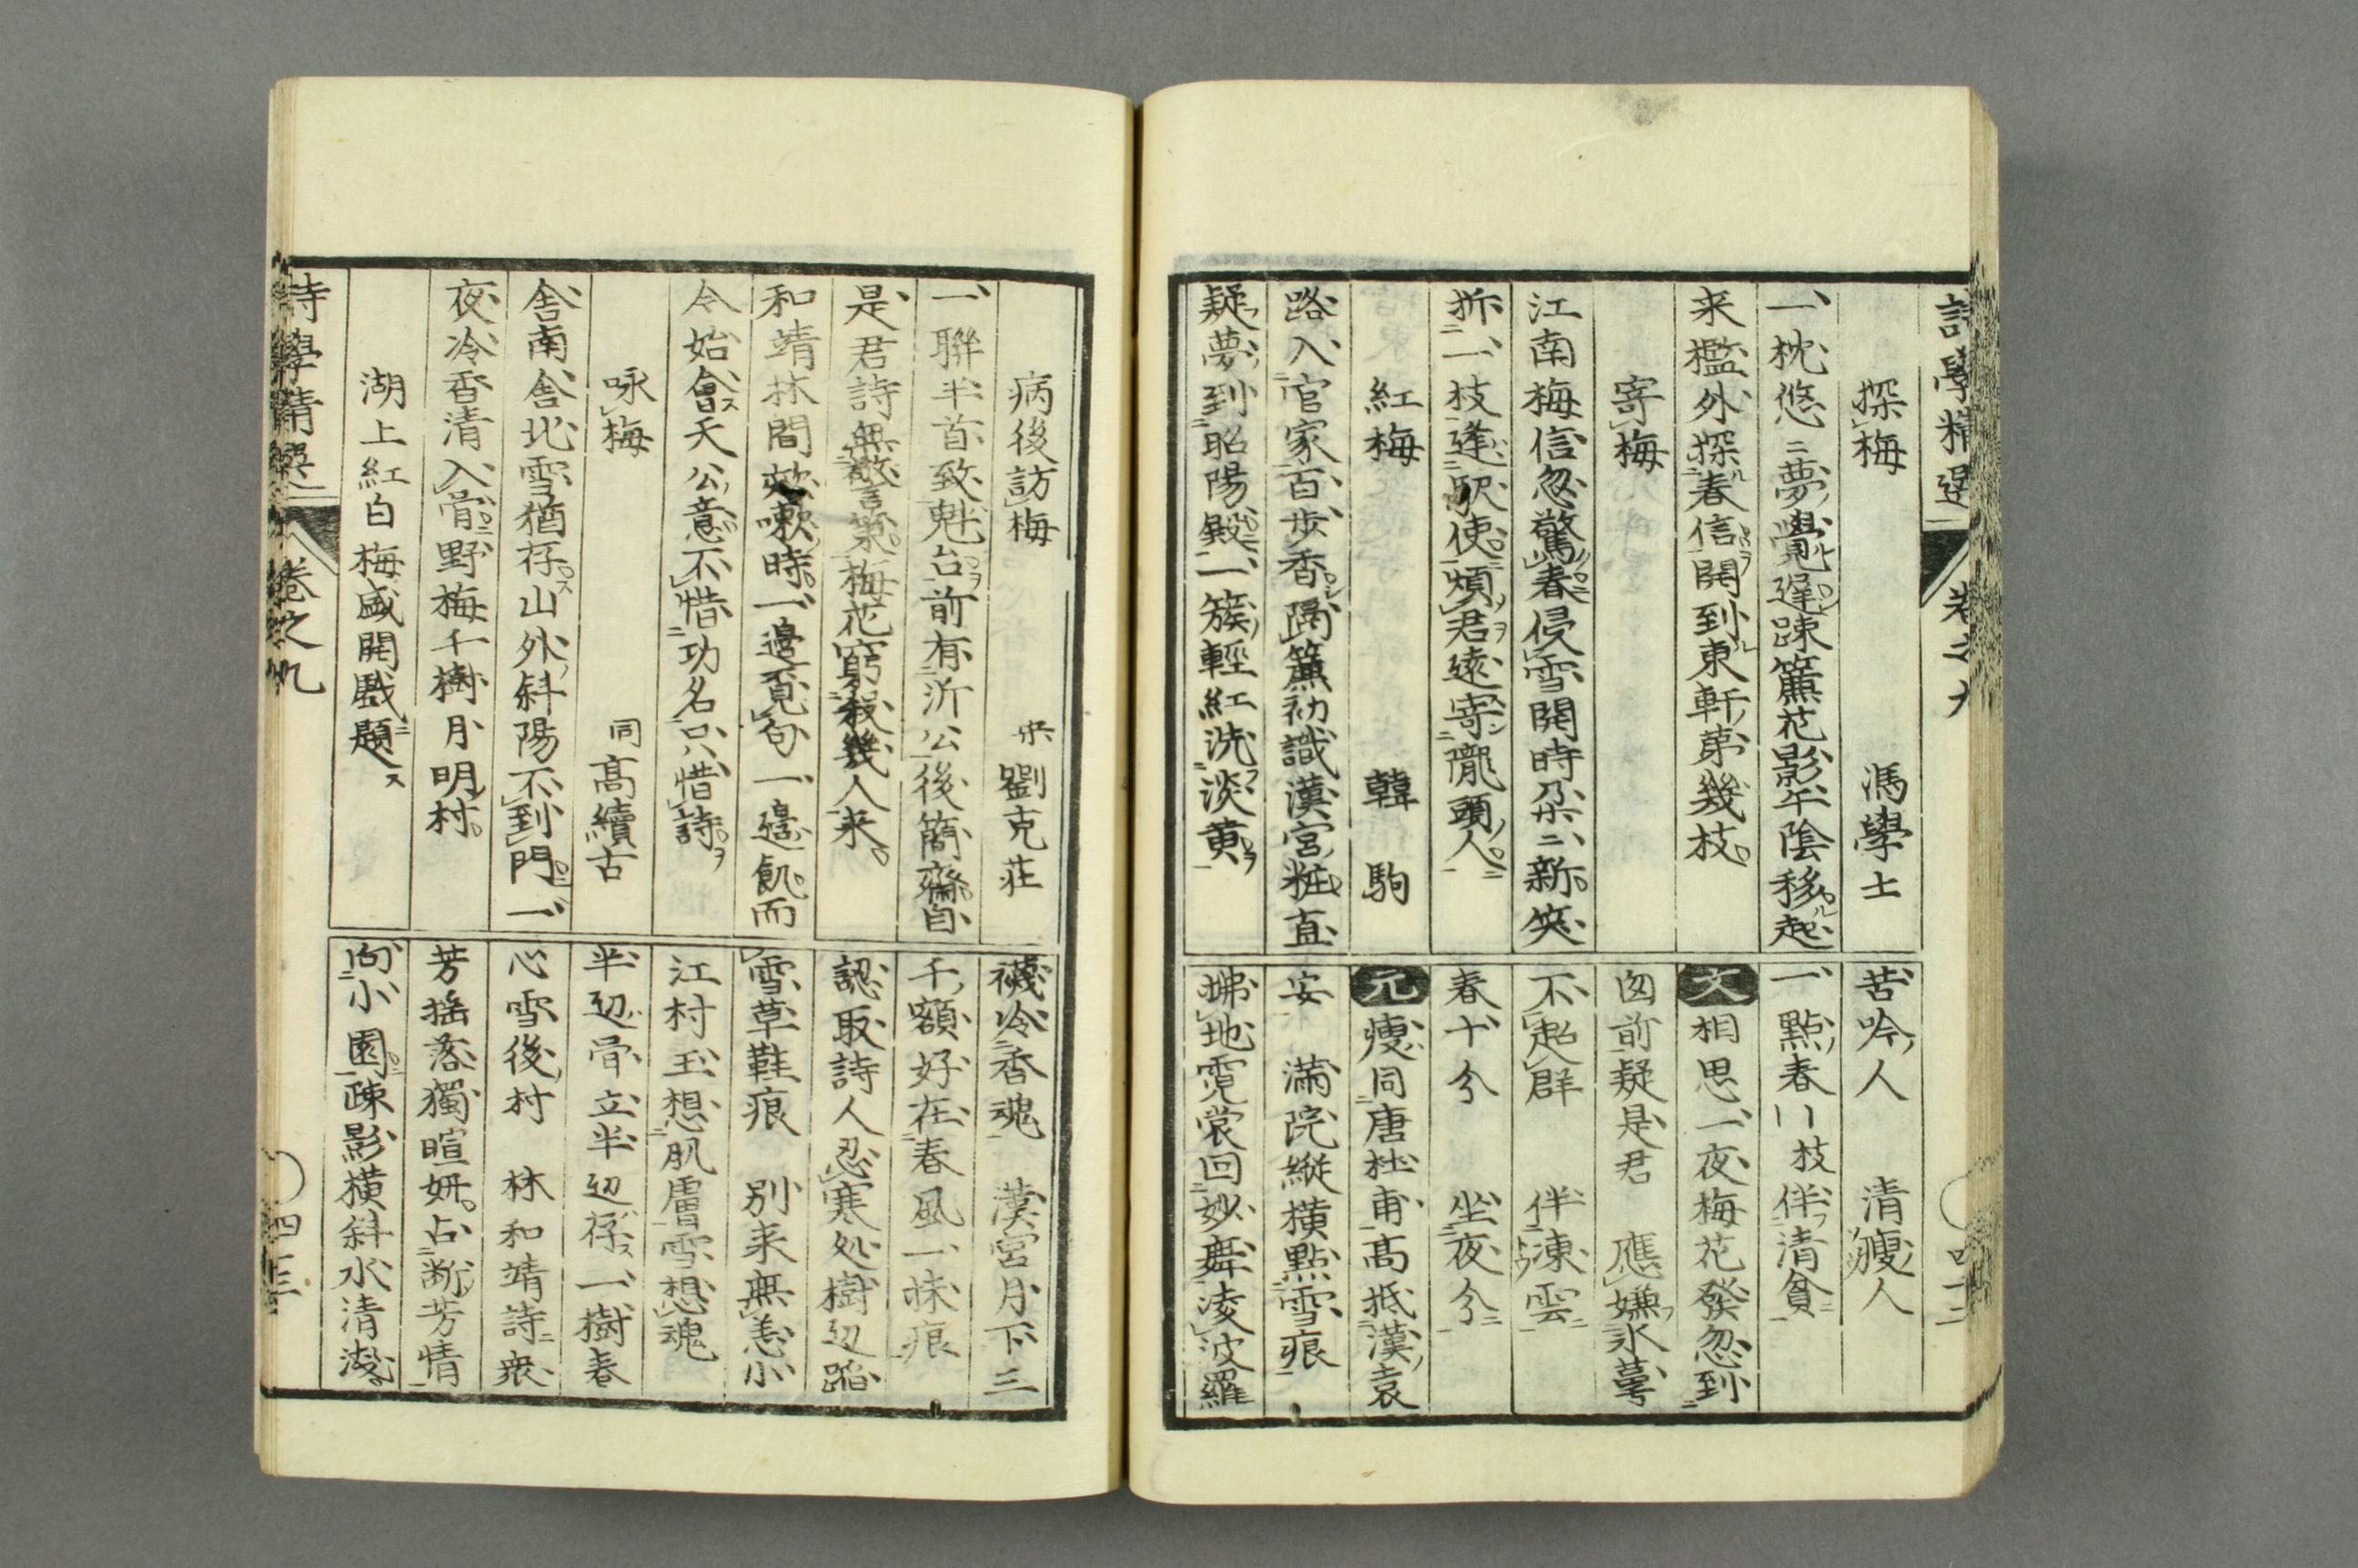 詩學精選 卷之九
探梅 馮學士
一枕悠ニ夢覺遅疎簾花影午陰移起
来檻外探春信開到東軒第幾枝
寄梅
江南梅信忽驚春侵雪開時朶ニ新笑
折一枝逢駅使煩君遠寄隴頭人
紅梅 韓駒
路入官家百歩香隔簾初識漢宮粧直
疑夢到昭陽殿一簇輕紅洗淡黄
苦吟人 清癯人
一點春 〢枝伴清貧
文 相思一夜梅花發忽到
囱前疑是君 應嫌氷蕚
不超群 伴凍雲
春十分 坐夜分
元 瘦同唐杜甫高抵漢袁
安 滿院縱横點雪痕
拂地霓裳回妙舞凌波羅
病後訪梅 宋 劉克荘
一聯半首致魁台前有沂公後簡齋自
是君詩無警策梅花窮殺幾人来
和靖林間欬嗽時一邉覓句一邉飢而
今始會天公意不惜功名只惜詩
咏梅 同 高續古
舎南舎北雪猶存山外斜陽不到門一
夜冷香清入骨野梅千樹月明村
湖上紅白梅盛開戲題
襪冷香魂 漢宮月下三
千額好在春風一抹痕
認取詩人忍寒処樹辺蹈
雪草鞋痕 別来無恙小
江村玉想肌膚雪想魂
半辺骨立半辺存一樹春
心雪後村 林和靖詩衆
芳揺落獨暄妍占断芳情
向小園疎影横斜水清淺
詩學精選 卷之九 四三